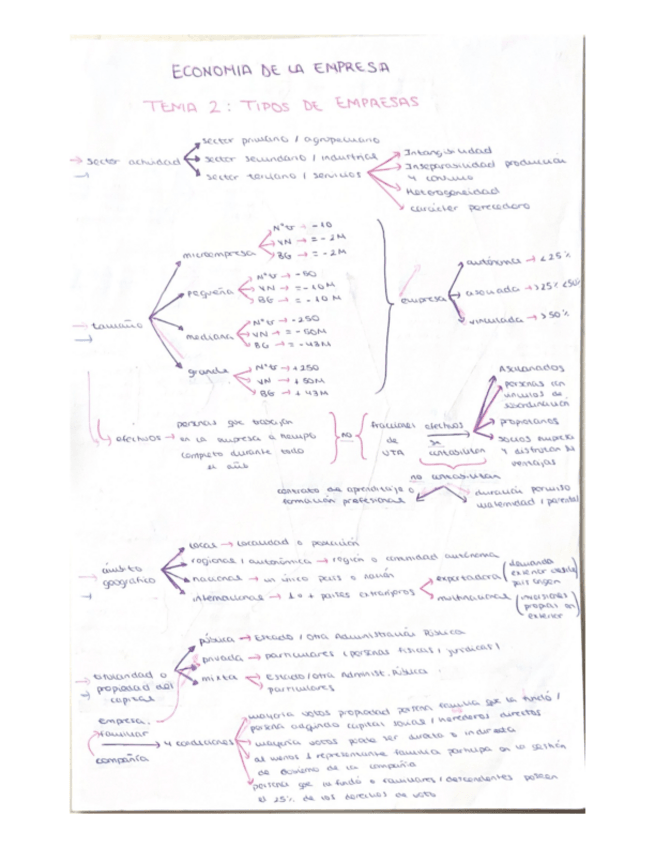 ECONOMIA DE LA EMPRESA
TEMA 2: TIPOS DE EMPRESAS
→ sector actividad
sector primario / agropecuario
sector secundario / industrial
sector terciario / servicios
Intangibilidad
Inseparabilidad producción
y consumo
Heterogeneidad
carácter perecedero
→ tamaño
microempresa
Nº tr → -10
VN → = -2M
BG → = -2M
pequeña
Nº tr → -50
VN → = -10M
BG → = -10M
mediana
Nº tr → -250
VN → = -50M
BG → = -43M
grande
Nº tr → +250
VN → +50M
BG → +43M
empresa
autónoma → <25%
asociada → >25% <50%
vinculada → >50%
efectivos →
personas que trabajan
en la empresa a tiempo
completo durante todo
el año
no
fracciones
de
UTA
efectivos
se
contabilizan
Asalariados
personas con
vínculos de
subordinación
propietarios
socios empresa
y disfrutan de
ventajas
no contabilizan
contrato de aprendizaje o
formación profesional
duración permiso
maternidad / parental
→ ámbito
geográfico
local → localidad o población
regional / autonómica → región o comunidad autónoma
nacional → un único país o nación
internacional → 1 o + países extranjeros
exportadora (demanda
exterior desde
país origen
multinacional (inversiones
propias en
exterior
→ titularidad o
→ propiedad del
capital
pública → Estado / otra Administración Pública
privada → particulares (personas físicas / jurídicas)
mixta → Estado / otra Administ. Pública
particulares
empresa
familiar
compañía
4 condiciones
mayoría votos propiedad persona familia que la fundó /
persona adquirido capital social / herederos directos
mayoría votos puede ser directa o indirecta
al menos 1 representante familia participa en la gestión
de gobierno de la compañía
persona que la fundó o familiares / descendientes posean
el 25% de los derechos de voto